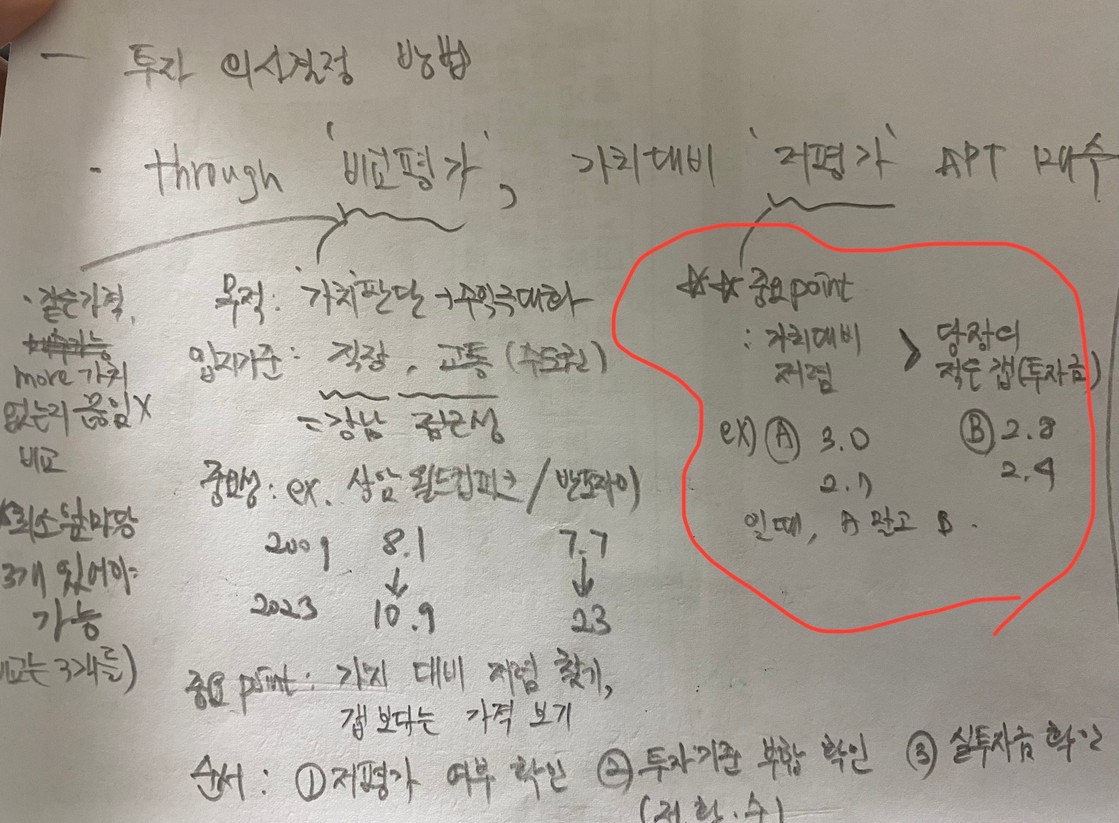 — 투자 의사결정 방법
· through '비교평가', 가치대비 '저평가' APT 매수
· 같은가격,
more 가치
있는지 끊임X
비교
최소 앞마당
3개 있어야
가능
비교는 3개를)
목적: 가치판단→수익극대화
입지기준: 직장, 교통 (수도권)
= 강남 접근성
중요성: ex. 상암 월드컵파크 / 반포자이
2009 8.1 7.7
↓ ↓
2023 10.9 23
중요 point: 가치 대비 저렴 찾기,
갭 보다는 가격 보기
순서: ① 저평가 여부 확인 ② 투자기준 부합 확인 ③ 실투자금 확인
(저.환.수)
☆☆ 중요 point
: 가치대비 > 당장의
저렴 적은 갭(투자금)
ex) Ⓐ 3.0 Ⓑ 2.8
2.7 2.4
일때, A 말고 B.